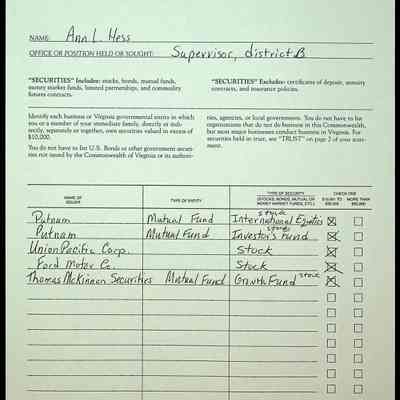 NAME: Ann L. Hess
OFFICE OR POSITION HELD OR SOUGHT: Supervisor, district B
"SECURITIES" Includes: stocks, bonds, mutual funds, money market funds, limited partnerships, and commodity futures contracts.
"SECURITIES" Excludes: certificates of deposit, annuity contracts, and insurance policies.
Identify each business or Virginia governmental entity in which
you or a member of your immediate family, directly or indi-
rectly, separately or together, own securities valued in excess of
$10,000.
You do not have to list U.S. Bonds or other government securi-
ties not issued by the Commonwealth of Virginia or its authori-
ties, agencies, or local governments. You do not have to list
organizations that do not do business in this Commonwealth,
but most major businesses conduct business in Virginia. For
securities held in trust, see "TRUST" on page 2 of your state-
ment.
NAME OF ISSUER
TYPE OF ENTITY
TYPE OF SECURITY
(STOCKS, BONDS, MUTUAL OR
MONEY MARKET FUNDS, ETC.)
CHECK ONE
$10,001 TO $50,000
MORE THAN $50,000
Putnam Mutual Fund International Equities stock
Putnam Mutual Fund Investor's Fund stock
Union Pacific Corp. Stock
Ford Motor Co. Stock
Thomas McKinnon Securities Mutual Fund Growth Fund stock